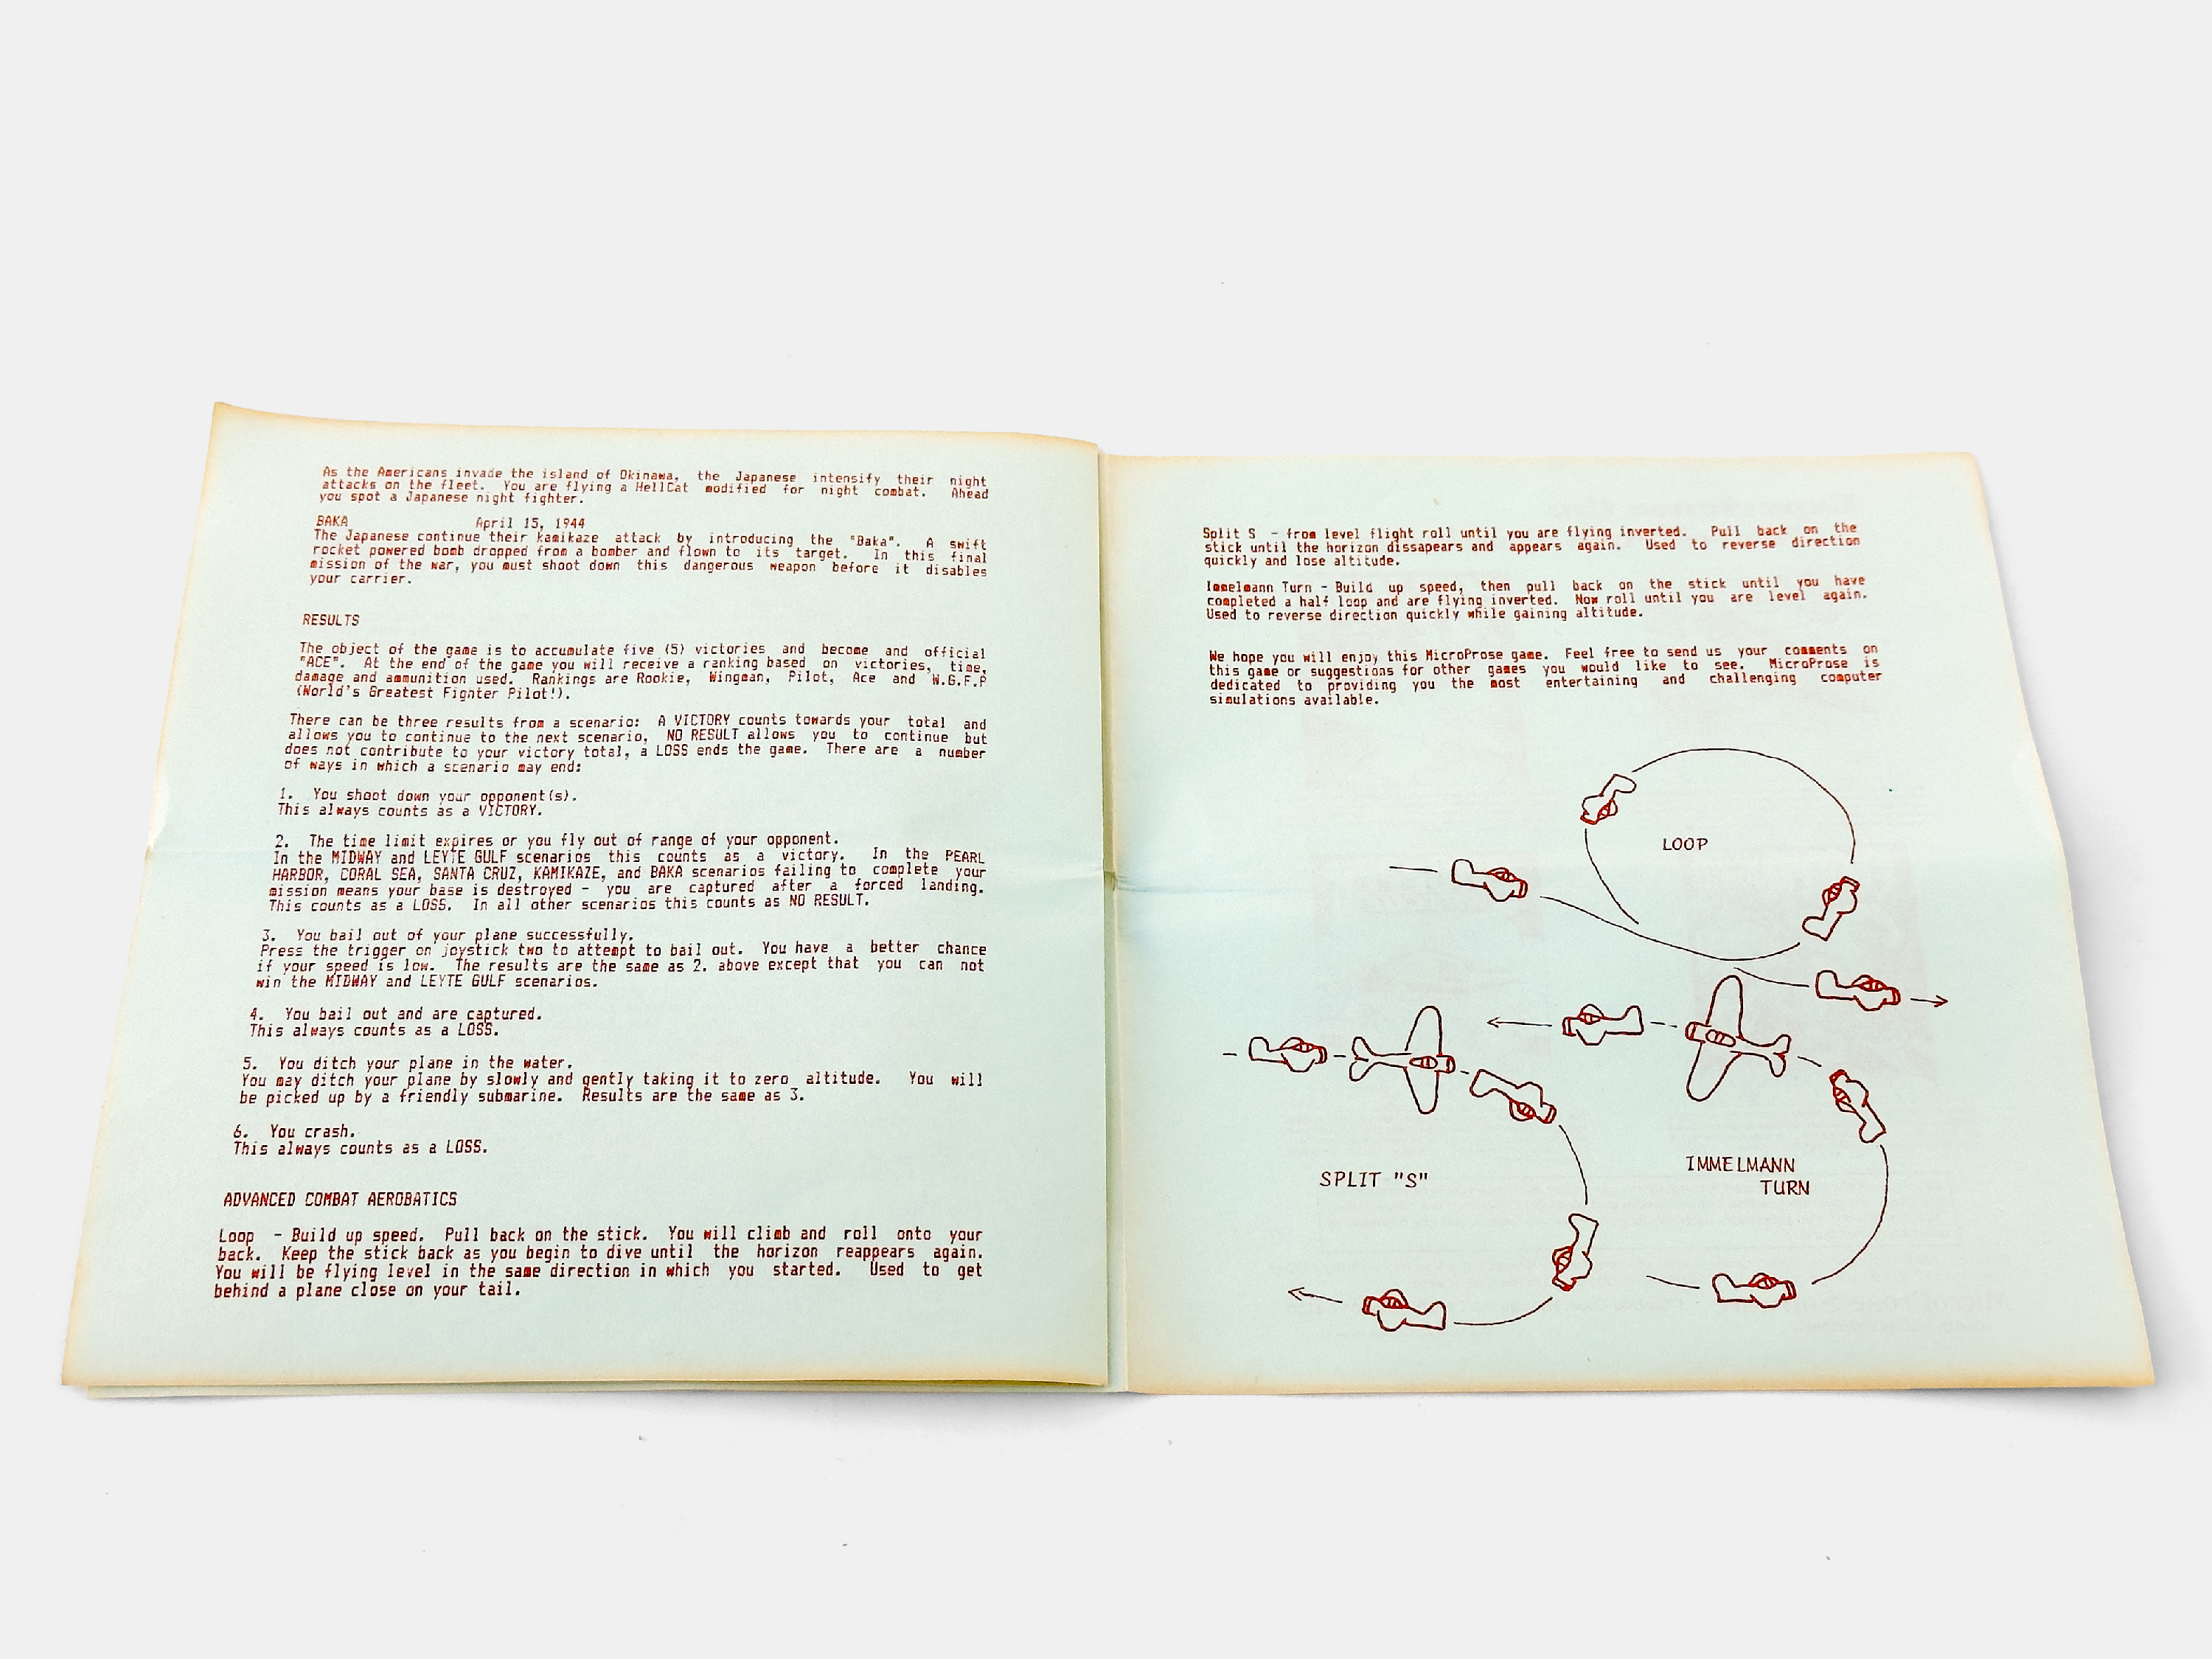 As the Americans invade the island of Okinawa, the Japanese intensify their night
attacks on the fleet. You are flying a HellCat modified for night combat. Ahead
you spot a Japanese night fighter.
BAKA April 15, 1944
The Japanese continue their kamikaze attack by introducing the "Baka". A swift
rocket powered bomb dropped from a bomber and flown to its target. In this final
mission of the war, you must shoot down this dangerous weapon before it disables
your carrier.
RESULTS
The object of the game is to accumulate five (5) victories and become and official
"ACE". At the end of the game you will receive a ranking based on victories, time,
damage and ammunition used. Rankings are Rookie, Wingman, Pilot, Ace and W.G.F.P
(World's Greatest Fighter Pilot!).
There can be three results from a scenario: A VICTORY counts towards your total and
allows you to continue to the next scenario, NO RESULT allows you to continue but
does not contribute to your victory total, a LOSS ends the game. There are a number
of ways in which a scenario may end:
1. You shoot down your opponent(s).
This always counts as a VICTORY.
2. The time limit expires or you fly out of range of your opponent.
In the MIDWAY and LEYTE GULF scenarios this counts as a victory. In the PEARL
HARBOR, CORAL SEA, SANTA CRUZ, KAMIKAZE, and BAKA scenarios failing to complete your
mission means your base is destroyed - you are captured after a forced landing.
This counts as a LOSS. In all other scenarios this counts as NO RESULT.
3. You bail out of your plane successfully.
Press the trigger on joystick two to attempt to bail out. You have a better chance
if your speed is low. The results are the same as 2. above except that you can not
win the MIDWAY and LEYTE GULF scenarios.
4. You bail out and are captured.
This always counts as a LOSS.
5. You ditch your plane in the water.
You may ditch your plane by slowly and gently taking it to zero altitude. You will
be picked up by a friendly submarine. Results are the same as 3.
6. You crash.
This always counts as a LOSS.
ADVANCED COMBAT AEROBATICS
Loop - Build up speed. Pull back on the stick. You will climb and roll onto your
back. Keep the stick back as you begin to dive until the horizon reappears again.
You will be flying level in the same direction in which you started. Used to get
behind a plane close on your tail.
Split S - from level flight roll until you are flying inverted. Pull back on the
stick until the horizon dissapears and appears again. Used to reverse direction
quickly and lose altitude.
Immelmann Turn - Build up speed, then pull back on the stick until you have
completed a half loop and are flying inverted. Now roll until you are level again.
Used to reverse direction quickly while gaining altitude.
We hope you will enjoy this MicroProse game. Feel free to send us your comments on
this game or suggestions for other games you would like to see. MicroProse is
dedicated to providing you the most entertaining and challenging computer
simulations available.
LOOP
SPLIT "S"
IMMELMANN
TURN